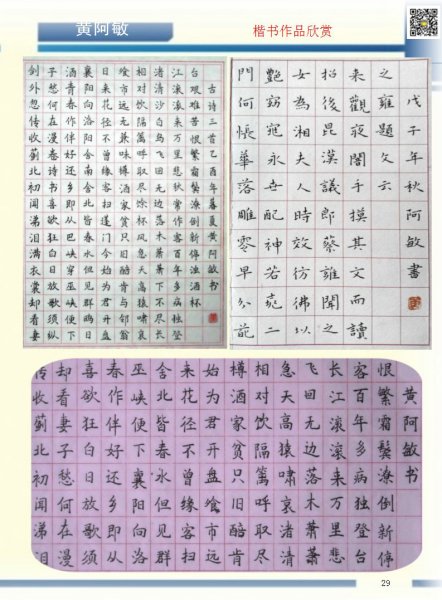 黄阿敏
楷书作品欣赏
古诗三首乙酉年暮夏黄阿敏书
台艰难苦恨繁霜鬓潦倒新停浊酒杯
江滚滚来万里悲秋常作客百年多病独登
渚清沙白鸟飞回无边落木萧萧下不尽长
相对饮隔篱呼取尽馀杯风急天高猿啸哀
飧市远无兼味樽酒家贫只旧醅肯与邻翁
日来花径不曾缘客扫蓬门今始为君开盘
襄阳向洛阳舍南舍北皆春水但见群鸥日
酒青春作伴好还乡即从巴峡穿巫峡便下
子愁何在漫卷诗书喜欲狂白日放歌须纵
剑外忽传收蓟北初闻涕泪满衣裳却看妻
戊子年秋阿敏書
之雍題文云
来觀夜闇手摸其文而讀
招後昆漢議郎蔡雍聞之
女為湘夫人時效彷彿以
艷窈窕永世配神若堯二
門何悵華落雕零早分葩
黄阿敏书
恨繁霜鬓潦倒新停
客百年多病独登台
长江滚滚来万里悲
飞回无边落木萧萧
急天高猿啸哀渚清
相对饮隔篱呼取尽
樽酒家贫只旧醅肯
始为君开盘飧市远
来花径不曾缘客扫
舍北皆春水但见群
巫峡便下襄阳向洛
春作伴好还乡即从
喜欲狂白日放歌须
却看妻子愁何在漫
传收蓟北初闻涕泪
29